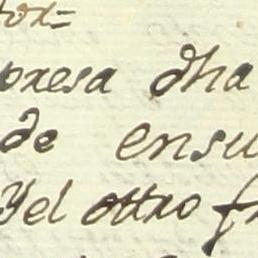 tox=
presa dha
de ensu
Yel ottro fr